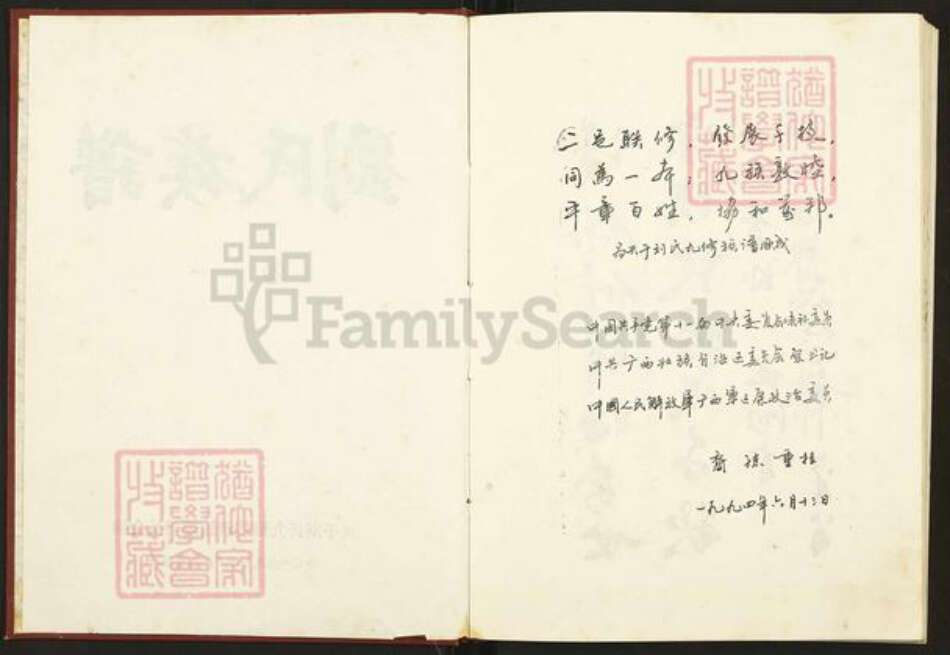 劉氏族譜
猶他家譜學會收藏
猶他家譜學會收藏
FamilySearch
二邑联修，發展手
同為一本；九族敦睦，
平章百姓，協和萬邦。
刘氏九修族谱
中国共产党第十一届中央委员
中共广西壮族自治区委员会书记
中國人民解放軍广西軍区政治委员
裔孫重桂
一九九四年六月十三日